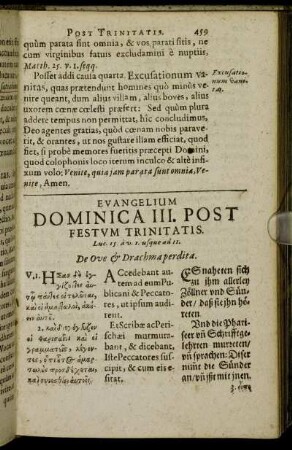 POST TRINITATIS. 459
quùm parata sint omnia, & vos parati sitis, ne
cum virginibus fatuis excludamini è nuptiis,
Matth. 25. v. 1. seqq.
Posset addi cauta quarta. Excusationum va-
nitas, quas prætendunt homines quò minùs ve-
nire queant, dum alius villam, alius boves, alius
uxorem cœnæ cœlesti præfert: Sed quùm plura
addere tempus non permittat, hîc concludimus,
Deo agentes gratias, quòd cœnam nobis parave-
rit, & orantes, ut nos gustare illam efficiat, quod
fiet, si probè memores fueritis præcepti Domini,
quod colophonis loco iterum inculco & altè infi-
xum volo: Venite, quia jam parata sunt omnia, Ve-
nite, Amen.
Excusatio-
num vani-
tas.
EVANGELIUM
DOMINICA III. POST
FESTUM TRINITATIS.
Luc. 15. à v. 1. usque ad 11.
De Ove & Drachma perdita.
V. 1.
Accedebant au-
tem ad eum Pu-
blicani & Peccato-
res, ut ipsum audi-
rent.
Et Scribæ ac Pe-
rischæi murmu-
rabant, & dicebant,
Iste Peccatores sus-
cipit, & cum eis e-
sitat.
Es naheten sich
zu ihm allerley
Zöllner und Sün-
der/ daß sie jhn hö-
reten.
Und die Phari-
seer uñ Schrifftge-
lehrten murreten/
uñ sprachen: Dieser
nimt die Sünder
an/ uñ isst mit jnen.